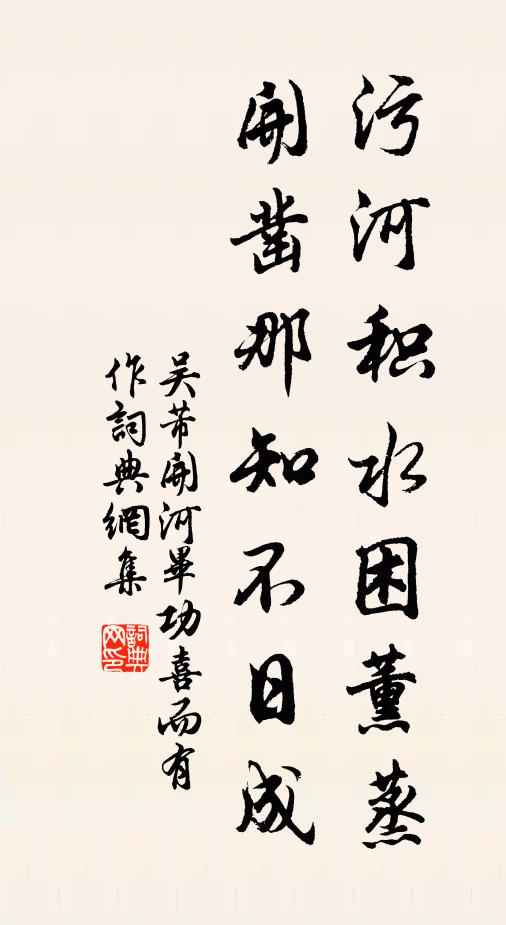 污河积水困薰蒸
開鑿那知不日成
吴芾開河畢功喜而有
作詞典網集
詞典网印